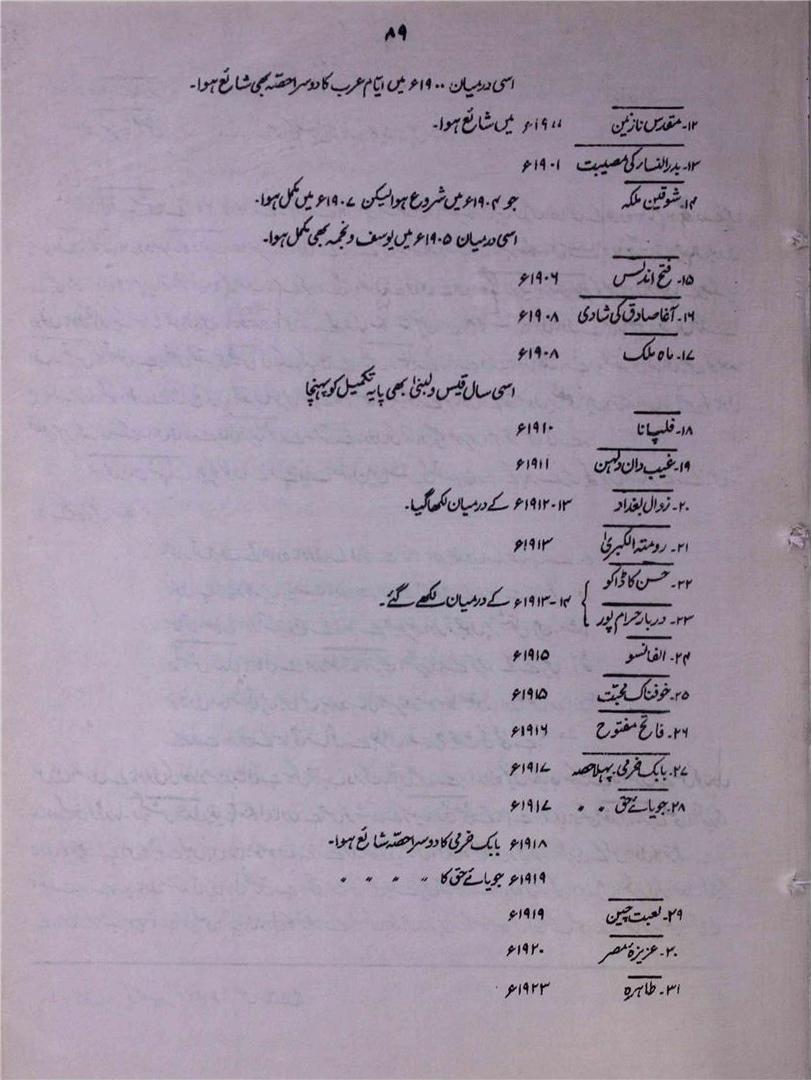 ۸۹
اسی درمیان ۱۹۰۰ء میں ایام عرب کا دوسرا حصّہ بھی شائع ہوا۔
۱۲۔ مقدس نازنین ۱۹۰۰ء میں شائع ہوا۔
۱۳۔ بدرالنساء کی مصیبت ۱۹۰۱ء
۱۴۔ شوقین ملکہ جو ۱۹۰۴ء میں شروع ہوا لیکن ۱۹۰۷ء میں مکمل ہوا۔
اسی درمیان ۱۹۰۵ء میں یوسف و نجمہ بھی مکمل ہوا۔
۱۵۔ فتح اندلس ۱۹۰۶ء
۱۶۔ آغا صادق کی شادی ۱۹۰۸ء
۱۷۔ ماہ ملک ۱۹۰۸ء
اسی سال قیس و لبنیٰ بھی پایہ تکمیل کو پہنچا
۱۸۔ فلپانا ۱۹۱۰ء
۱۹۔ غیب دان دلہن ۱۹۱۱ء
۲۰۔ زوال بغداد ۱۳-۱۹۱۲ء کے درمیان لکھا گیا۔
۲۱۔ رومتہ الکبریٰ ۱۹۱۳ء
۲۲۔ حسن کا ڈاکو
۱۴-۱۹۱۳ء کے درمیان لکھے گئے۔
۲۳۔ دربار حرام پور
۲۴۔ الفانسو ۱۹۱۵ء
۲۵۔ خوفناک محبّت ۱۹۱۵ء
۲۶۔ فاتح مفتوح ۱۹۱۶ء
۲۷۔ بابک خرمی پہلا حصہ ۱۹۱۷ء
۲۸۔ جویائے حق 〃 〃 ۱۹۱۷ء
۱۹۱۸ء بابک خرمی کا دوسرا حصّہ شائع ہوا۔
۱۹۱۹ء جویائے حق کا 〃 〃 〃 〃
۲۹۔ لعبت چین ۱۹۱۹ء
۳۰۔ عزیزۂ مصر ۱۹۲۰ء
۳۱۔ طاہرہ ۱۹۲۳ء